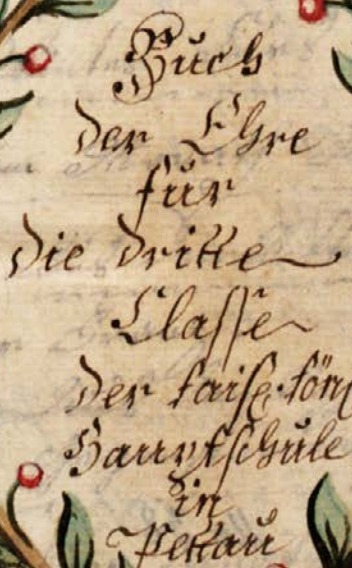 Buch
der Ehre
für
die dritte
Classe
der kais. kön
Hauptschule
in
Pettau